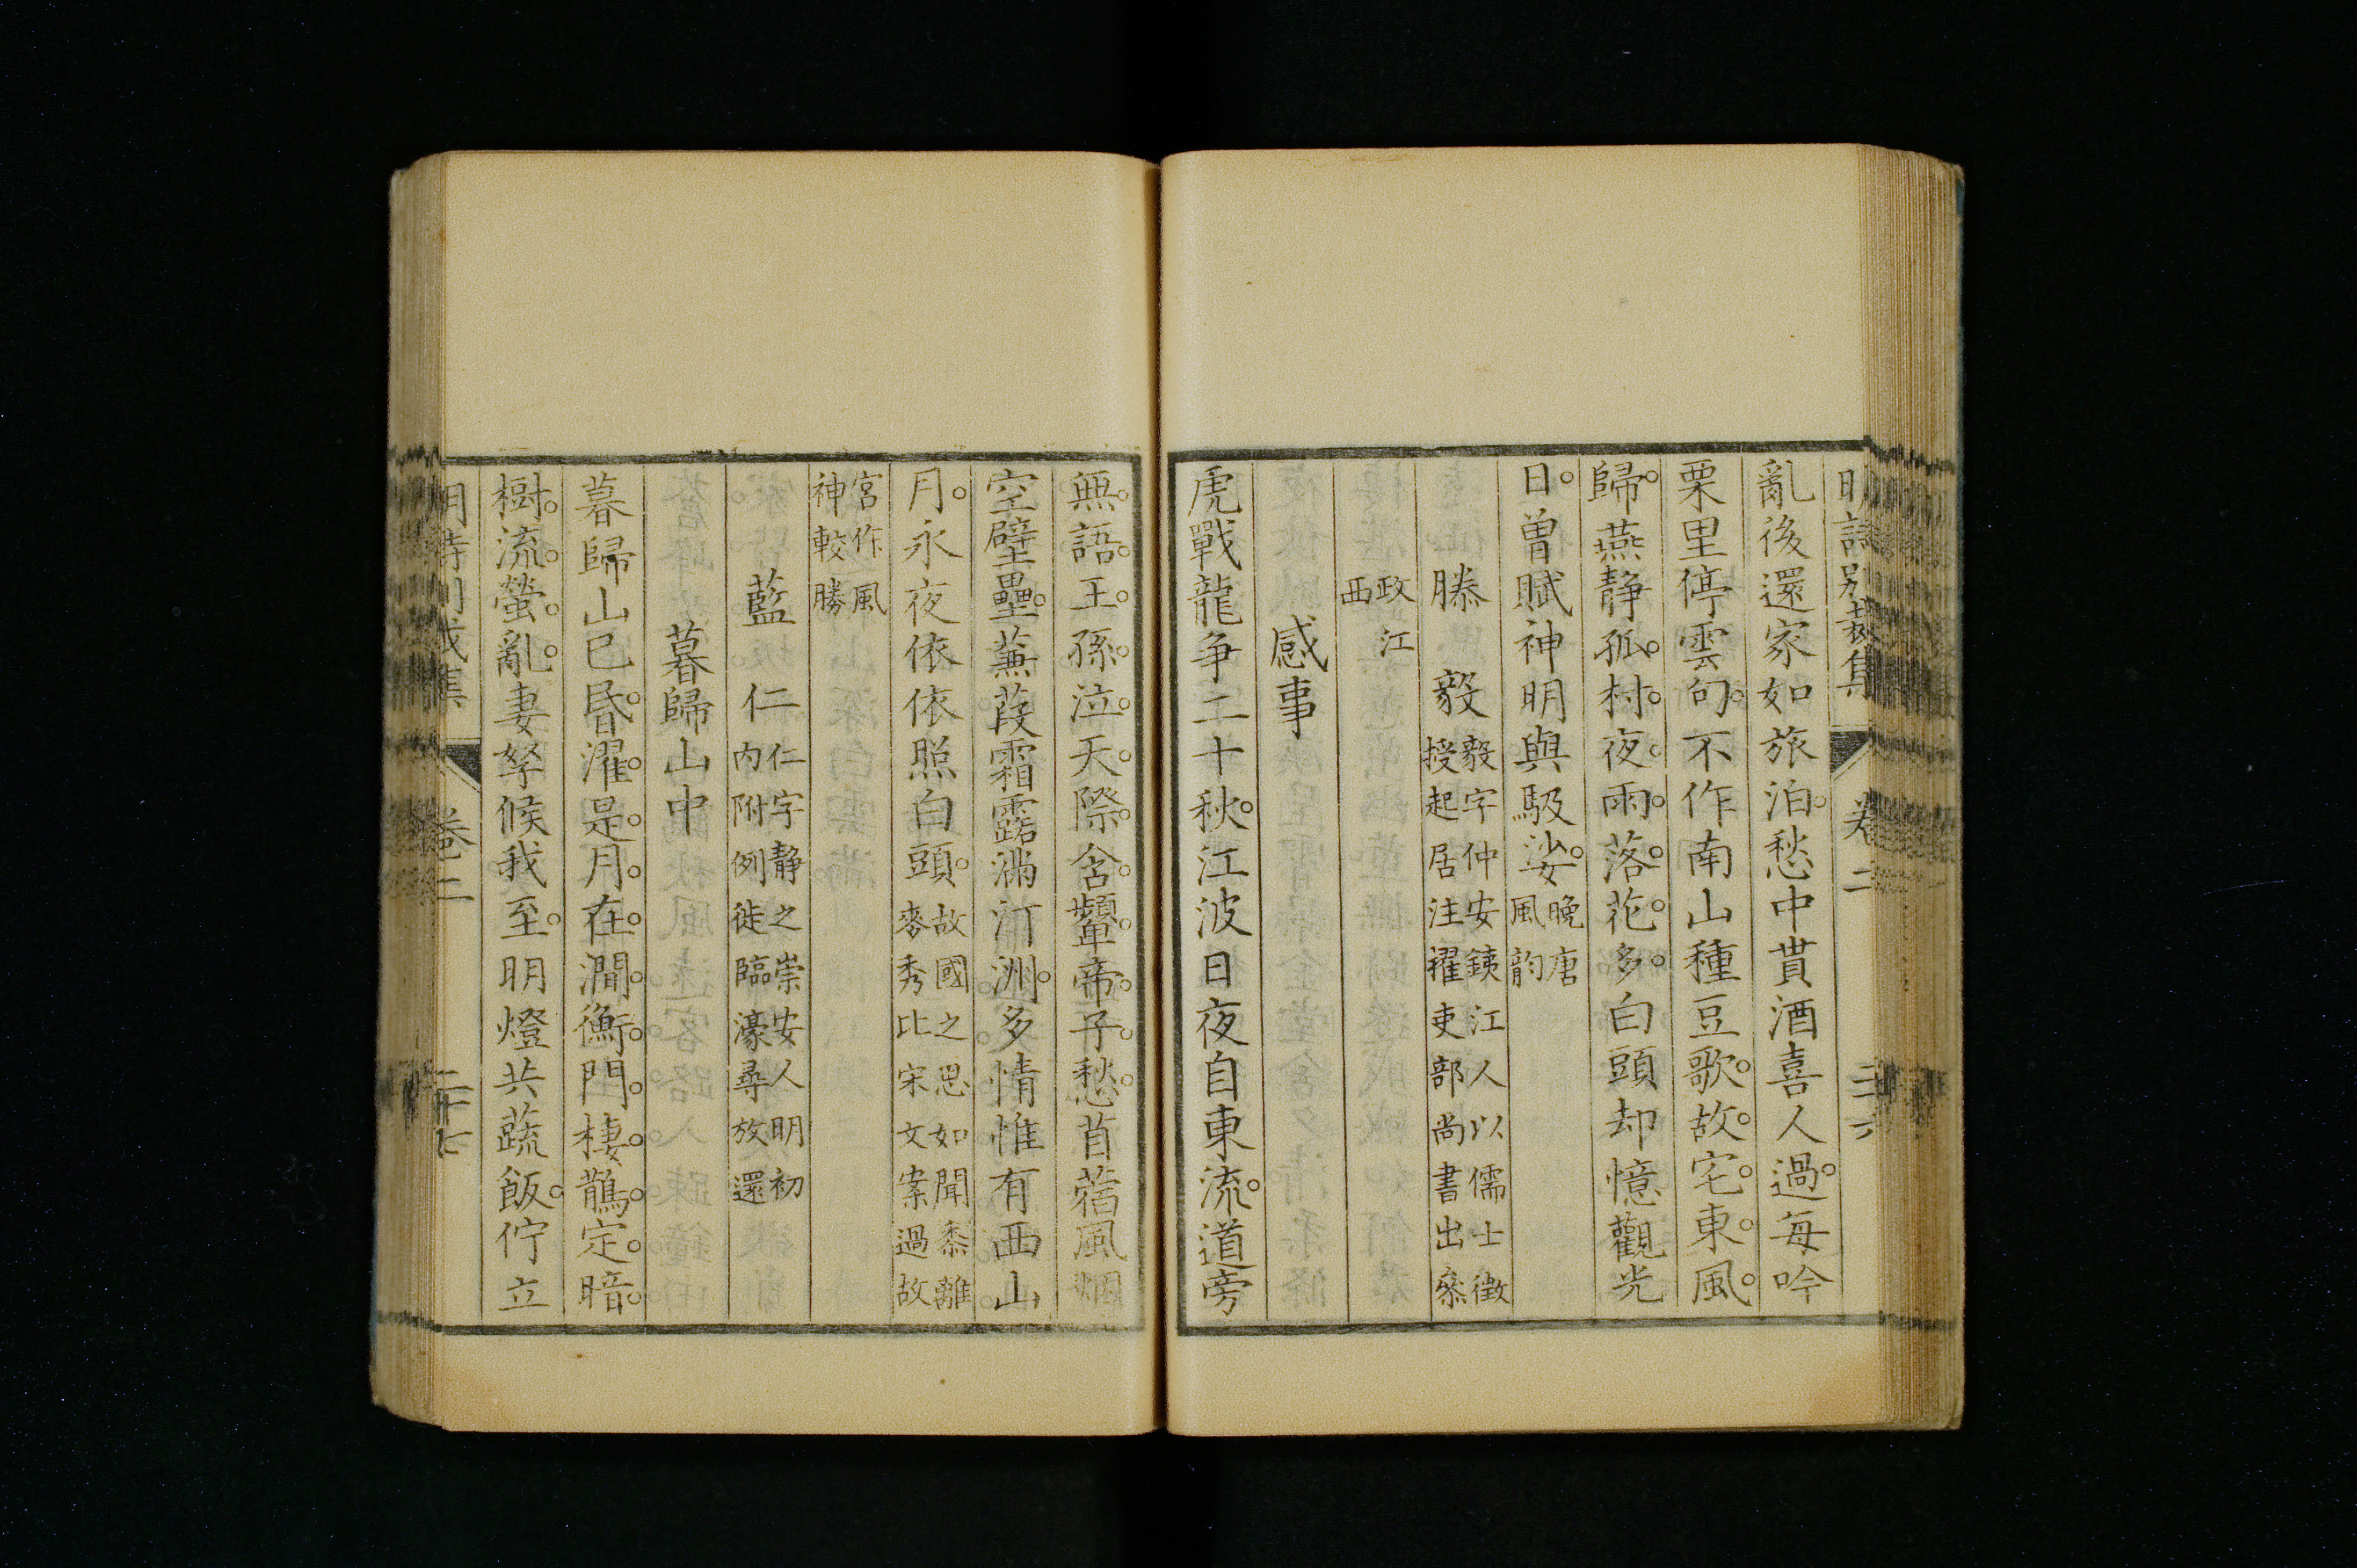 明詩別裁集 卷二 二十六
亂後還家如旅泊愁中貰酒喜人過每吟
栗里停雲句不作南山種豆歌故宅東風
歸燕静孤村夜雨落花多白頭却憶觀光
日曽賦神明與馺娑晚唐風韵
滕毅毅字仲安鎮江人以儒士徵授起居注擢吏部尚書出叅
政江西
感事
虎戰龍争二十秋江波日夜自東流道旁
無語王孫泣天際含顰帝子愁苜蓿風烟
空壁壘蒹葭霜露滿汀洲多情惟有西山
月永夜依依照白頭故國之思如聞黍離麥秀比宋文案過故
宮作風神較勝
藍仁仁字静之崇安人明初内附例徙臨濠尋放還
暮歸山中
暮歸山已昏濯足月在澗衡門棲鵲定暗
樹流螢亂妻孥候我至明燈共蔬飯佇立
明詩別裁集 卷二 二十七